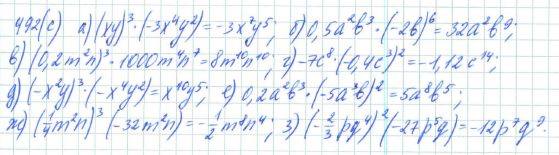 492(с) а) (xy)³·(-3x⁴y²)=-3x⁷y⁵; б) 0,5a²b³·(-2b)⁶=32a²b⁹;
в) (0,2m²n)³·1000m⁴n⁷=8m¹⁰n¹⁰; г) -7c⁸·(-0,4c³)²=-1,12c¹⁴;
д) (-x²y)³·(-x⁴y²)=x¹⁰y⁵; е) 0,2a²b³·(-5a³b)²=5a⁸b⁵;
ж) (1/4m²n)³·(-32m²n)=-1/2m⁸n⁴; з) (-2/3pq⁴)²·(-27p⁵q)=-12p⁷q⁹.